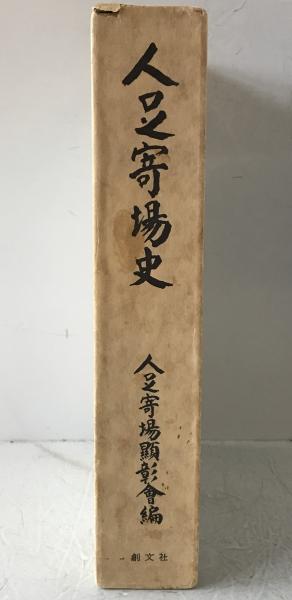 人足寄場史
人足寄場顯彰會編
創文社